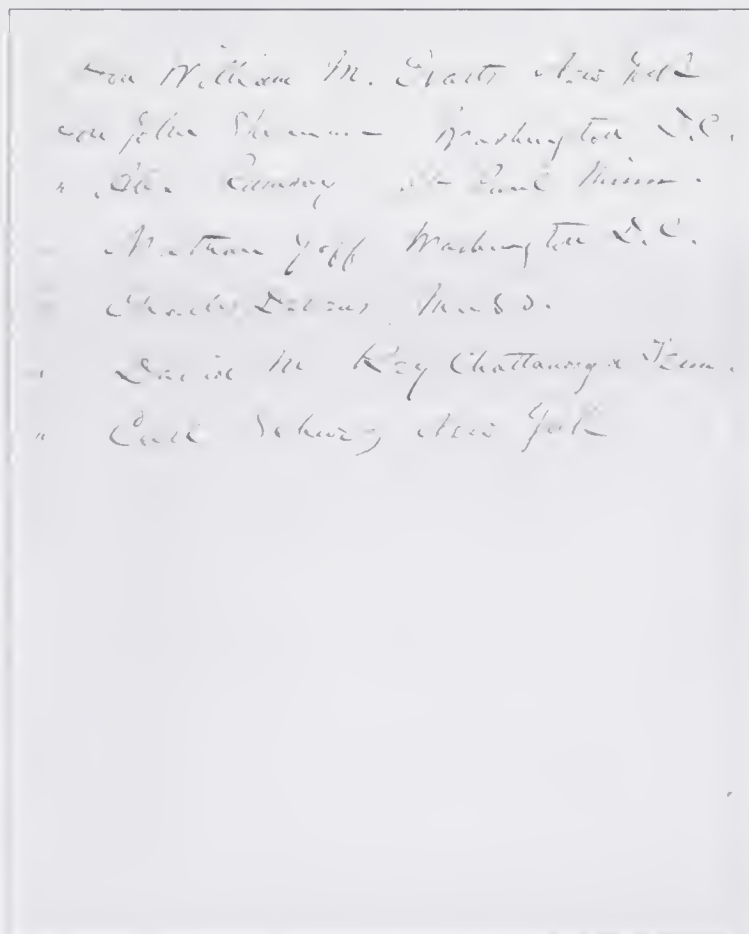 Hon William M. Evarts New York
Hon John Sherman Washington D.C.
" Alex. Ramsey St Paul Minn.
Nathan Goff Washington D.C.
Charles Devens Mass.
" David M Key Chattanooga Tenn.
" Carl Schurz New York